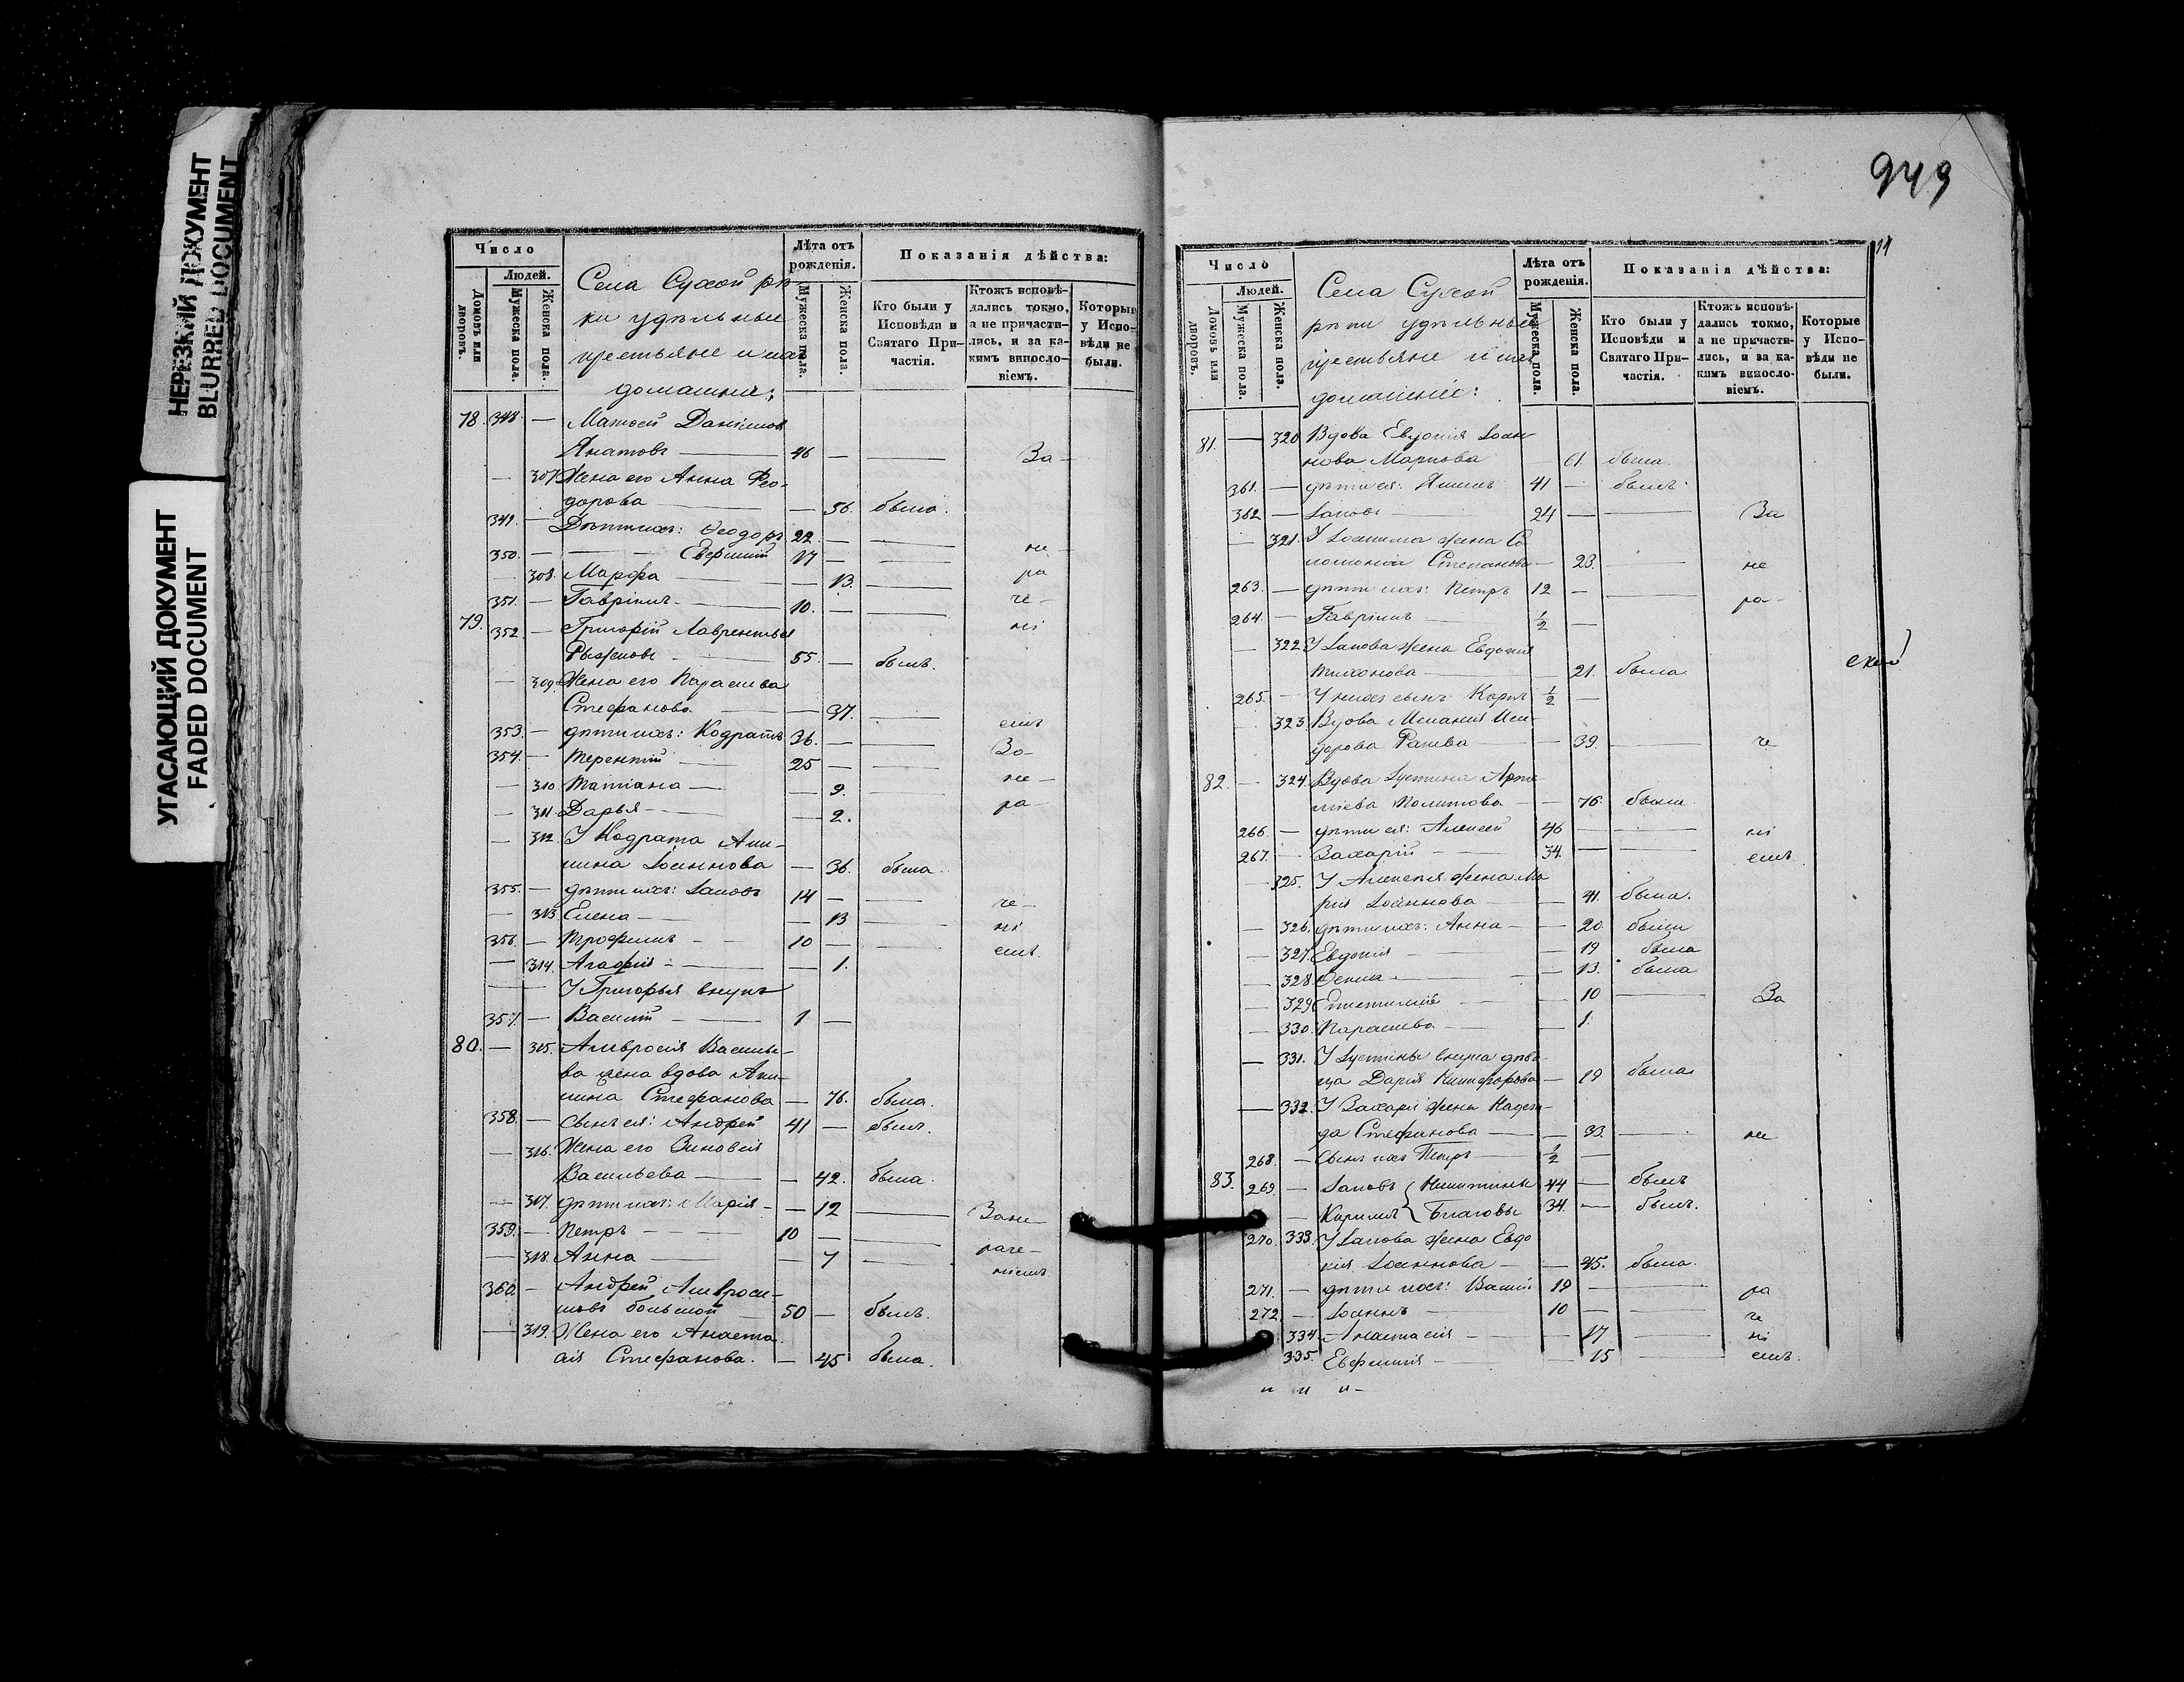 НЕРЕЗКИЙ ДОКУМЕНТ
BLURRED DOCUMENT
УГАСАЮЩИЙ ДОКУМЕНТ
FADED DOCUMENT
Число
Людей.
Домовъ или дворовъ.
Мужеска пола.
Женска пола.
Села Сухой рѣ-
ки удѣльные
крестьяне и ихъ
домашніе:
Лѣта отъ рожденія.
Мужеска пола.
Женска пола.
Показанія дѣйства:
Кто были у Исповѣди и Святаго При-частія.
Ктожъ исповѣ-дались токмо, а не причасти-лись, и за ка-кимъ винословіемъ.
Которые у Испо-вѣди не были.
78. 348. — Матѳей Даниловъ
Игнатовъ — 46 — — За-
— 307 Жена его Анна Ѳео-
дорова — — 56. была.
349. — Дѣти ихъ: Ѳеодоръ 22. — —
350. — — Евфимій 17 — — не-
— 308. Марфа — — 13. — ра
351. — Гавріилъ — 10. — — че-
79. 352. — Григорій Лаврентьев ні
Рыжковъ — 55. — былъ.
— 309. Жена его Параскева
Стефанова — 37. — емъ
353. — дѣти ихъ: Кодратъ 36. — — За-
354. — Терентій — 25 — — не-
— 310. Татіана — — 9. — ра-
— 311 Дарья — — 2.
— 312. У Кодрата Аки-
лина Іоаннова — 36. была.
355. — дѣти ихъ: Іаковъ 14 — — че-
— 313. Елена — — 13 — ні
356. — Трофимъ — 10 — — емъ.
— 314. Агафія — — 1.
У Григорья внукъ
357. — Василій — 1 —
80. — 315. Амвросія Василье-
ва жена вдова Аки-
лина Стефанова — 76. была.
358. — Сынъ ея: Андрей 41 — былъ.
— 316. Жена его Зиновія
Васильева — — 42. была.
— 317. дѣти ихъ: Марія — — 12 — За не-
359. — Петръ — 10 — —
— 318. Анна — — 7 — раче-
360. — Андрей Амвроси- ніемъ
мовъ большой 50 — былъ.
— 319. Жена его Анаста-
сія Стефанова. — 45 была.
949
11
Число
Людей.
Домовъ или дворовъ.
Мужеска пола.
Женска пола.
Села Сухой
рѣки удѣльные
крестьяне и ихъ
домашніе:
Лѣта отъ рожденія.
Мужеска пола.
Женска пола.
Показанія дѣйства:
Кто были у Исповѣди и Святаго При-частія.
Ктожъ исповѣ-дались токмо, а не причасти-лись, и за ка-кимъ винословіемъ.
Которые у Испо-вѣди не были.
81. — 320. Вдова Евдокія Іоан-
нова Маркова — 61. была.
361. — дѣти ея: 41 — былъ.
362 — Іаковъ — 24 — — За
— 321. У жена Со-
ломонія Степанова — 23. — не
263. — дѣти ихъ: Петръ 12 — — ра-
264. — Гавріилъ — ½ —
— 322. У Іакова жена Евдокія
Тихонова — — 21. была
265. — У нихъ сынъ Карпъ ½ —
323. Вдова Меланія Иси-
дорова — — 39. — че
82. — 324. Вдова Іустина
— — 76. была.
266. — дѣти ея: Алексей 46 — — ні
267. — Захарій — 34. — — емъ
— 325. У Алексея жена Ма-
рія Іоаннова — — 41. была.
— 326. дѣти ихъ: Анна — — 20. была
— 327. Евдокія — — 19 была
— 328. — — 13. была
— 329. — — 10 — За
— 330. Параскева — — 1.
— 331. У Іустины внука дѣви-
ца Дарія Никифорова — 19 была
— 332. У Захарія жена Надеж-
да Стефанова — — 33. — не
268. — Сынъ ихъ Петръ — ½ —
83. 269. — Іаковъ { Никитины 44 — былъ
— Кирилъ { 34. — былъ.
270. 333. У Іакова жена Евдо
кія Іоаннова — — 45. была.
271. — дѣти ихъ: 19 — — ра
272 — Іоаннъ — 10 — — че
334. Анастасія — — 17 — ні
335. Евфимія — — 15 — емъ.